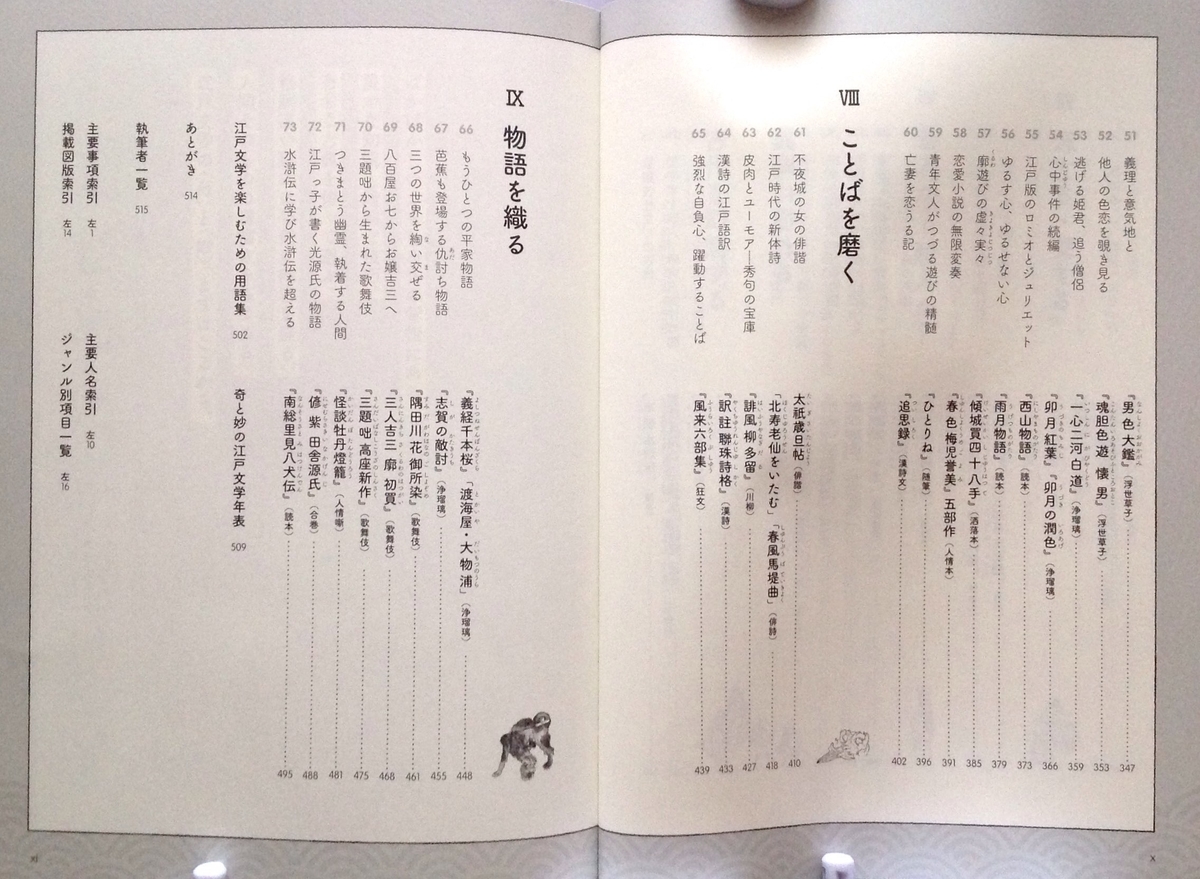 51 義理と意気地と 『男色大鑑』(浮世草子) 347
52 他人の色恋を覗き見る 『魂胆色遊懐男』(浮世草子) 353
53 逃げる姫君、追う僧侶 『一心二河白道』(浄瑠璃) 359
54 心中事件の続編 『卯月紅葉』『卯月の潤色』(浄瑠璃) 366
55 江戸版のロミオとジュリエット 『西山物語』(読本) 373
56 ゆるす心、ゆるせない心 『雨月物語』(読本) 379
57 廓遊びの虚々実々 『傾城買四十八手』(洒落本) 385
58 恋愛小説の無限変奏 『春色梅児誉美』五部作(人情本) 391
59 青年文人がつづる遊びの精髄 『ひとりね』(随筆) 396
60 亡妻を恋うる記 『追思録』(漢詩文) 402
Ⅷ ことばを磨く
61 不夜城の女の俳諧 『太祇歳旦帖』(俳諧) 410
62 江戸時代の新体詩 「北寿老仙をいたむ」「春風馬堤曲」(俳詩) 418
63 皮肉とユーモア―秀句の宝庫 『誹風柳多留』(川柳) 427
64 漢詩の江戸語訳 『訳註聯珠詩格』(漢詩) 433
65 強烈な自負心、躍動することば 『風来六部集』(狂文) 439
x
Ⅸ 物語を織る
66 もうひとつの平家物語 『義経千本桜』「渡海屋・大物浦」(浄瑠璃) 448
67 芭蕉も登場する仇討ち物語 『志賀の敵討』(浄瑠璃) 455
68 三つの世界を綯い交ぜる 『隅田川花御所染』(歌舞伎) 461
69 八百屋お七からお嬢吉三へ 『三人吉三廓初買』(歌舞伎) 468
70 三題咄から生まれた歌舞伎 『三題咄高座新作』(歌舞伎) 475
71 つきまとう幽霊、執着する人間 『怪談牡丹燈籠』(人情噺) 481
72 江戸っ子が書く光源氏の物語 『偐紫田舎源氏』(合巻) 488
73 水滸伝に学び水滸伝を超える 『南総里見八犬伝』(読本) 495
江戸文学を楽しむための用語集 502
奇と妙の江戸文学年表 509
あとがき 514
執筆者一覧 515
主要事項索引 左1
主要人名索引 左10
掲載図版索引 左14
ジャンル別項目一覧 左16
xi